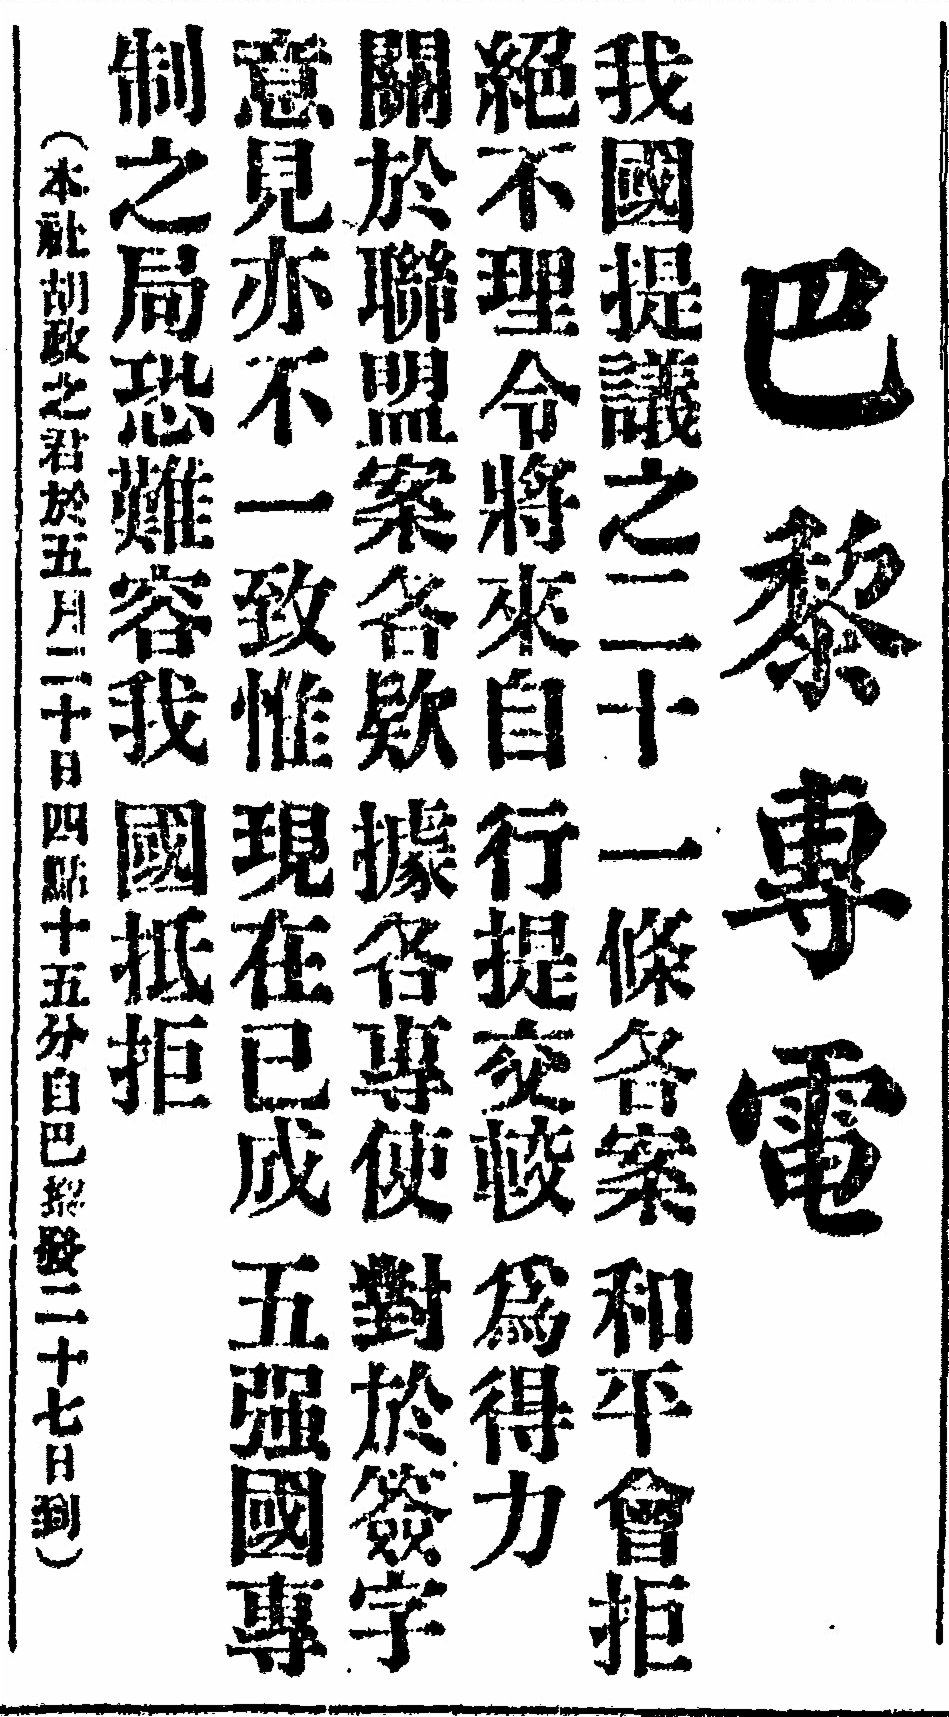 巴黎專電
我國提議之二十一條各案和平會拒
絕不理令將來自行提交較爲得力
關於聯盟案各欵據各專使對於簽字
意見亦不一致惟現在已成五强國專
制之局恐難容我國抵拒
（本社胡政之君於五月二十日四點十五分自巴黎發二十七日到）